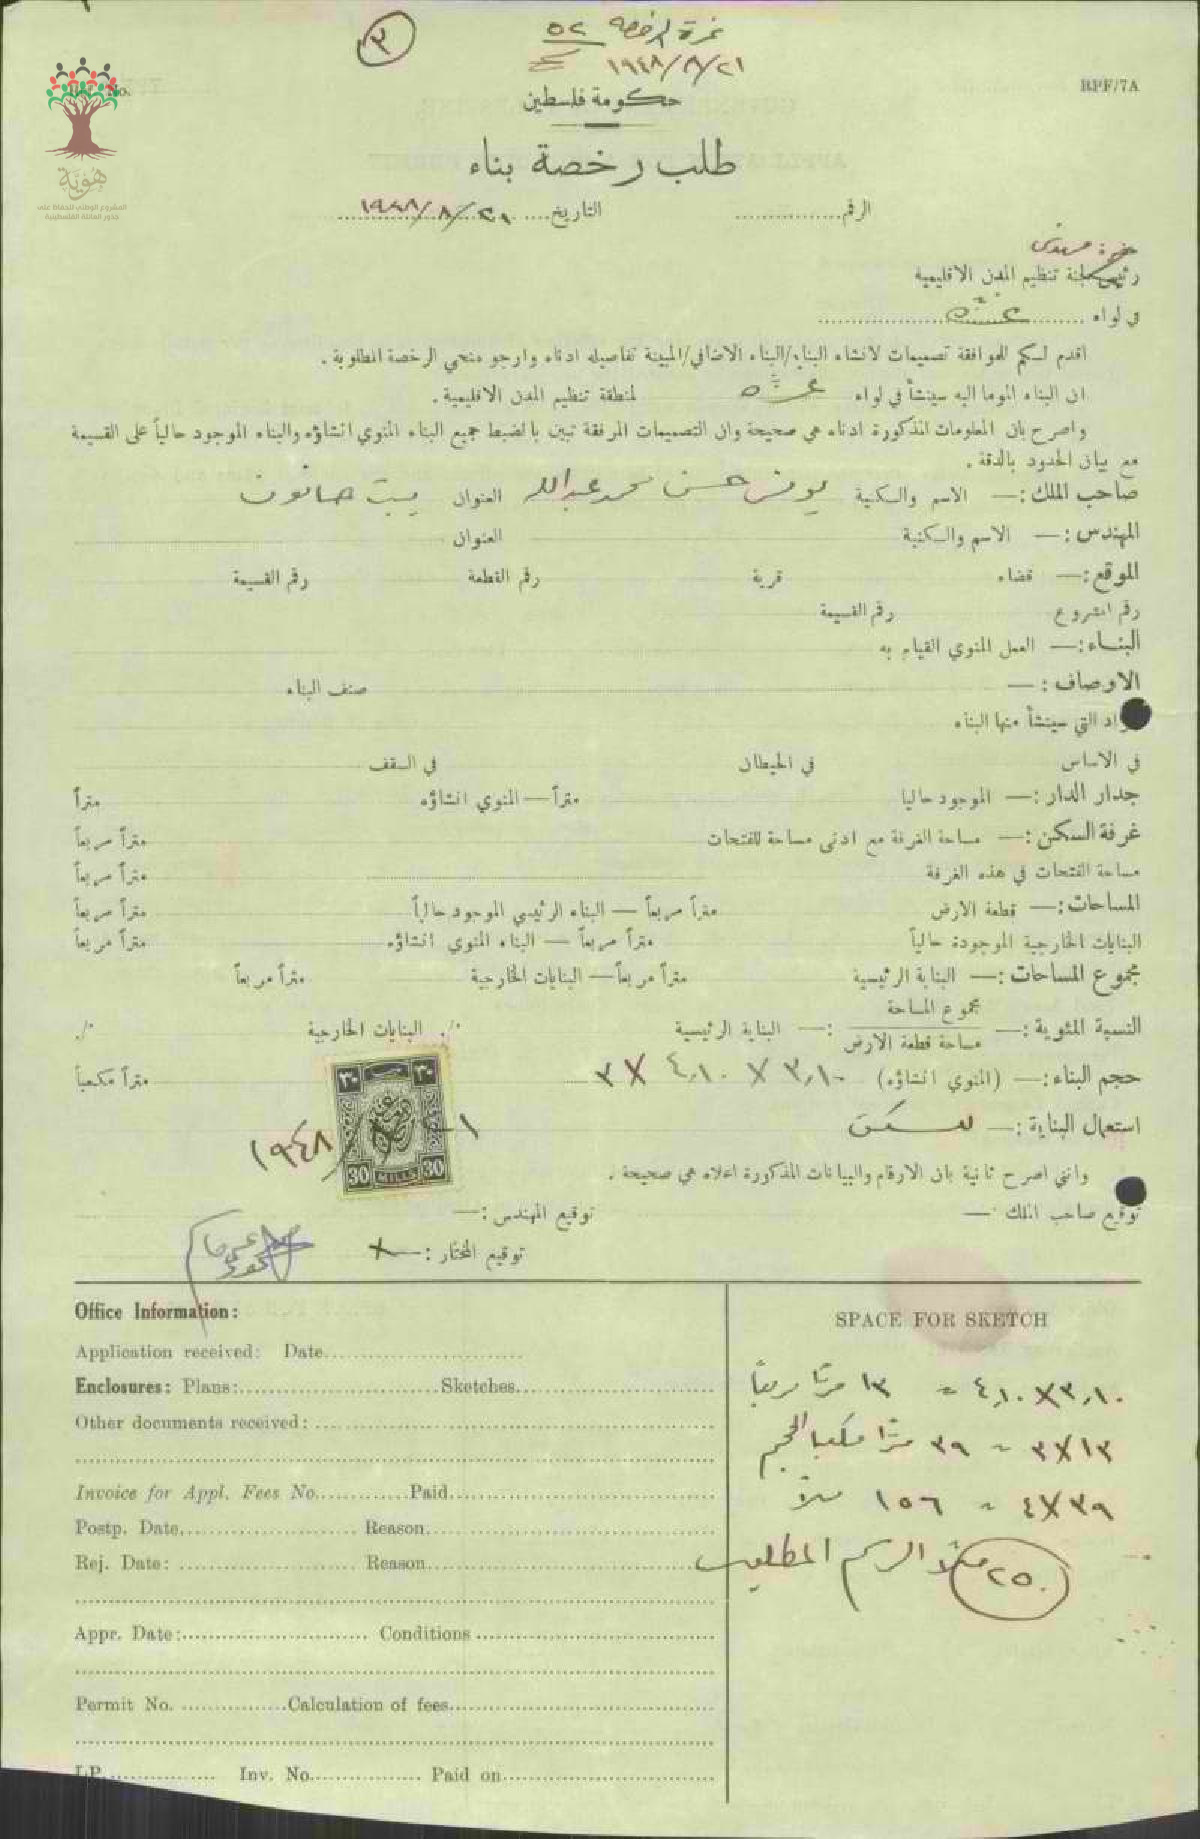 ٣
نمرة الرخصة ٥٢
١٩٤٨/٨/٢١
No.
RPF/7A
هوية
المشروع الوطني للحفاظ على
جذور العائلة الفلسطينية
حكومة فلسطين
طلب رخصة بناء
الرقم ............ التاريخ .... ١٩٤٨/٨/٢١
رئيس لجنة تنظيم المدن الاقليمية
في لواء ...... غزه ......
اقدم لكم للموافقة تصميمات لانشاء البناء/البناء الاضافي/المبينة تفاصيله ادناه وارجو منحي الرخصة المطلوبة .
ان البناء الموما اليه سينشأ في لواء غزه لمنطقة تنظيم المدن الاقليمية .
واصرح بان المعلومات المذكورة ادناه هي صحيحة وان التصميمات المرفقة تبين بالضبط جميع البناء المنوي انشاؤه والبناء الموجود حالياً على القسيمة
مع بيان الحدود بالدقة .
صاحب الملك :— الاسم والكنية يونس حسن محمد عبدالله العنوان بيت حانون
المهندس :— الاسم والكنية العنوان
الموقع :— قضاء قرية رقم القطعة رقم القسيمة
رقم المشروع رقم القسيمة
البناء :— العمل المنوي القيام به
الاوصاف :— صنف البناء
واد التي سينشأ منها البناء
في الاساس في الحيطان في السقف
جدار الدار :— الموجود حاليا متراً — المنوي انشاؤه متراً
غرفة السكن :— مساحة الغرفة مع ادنى مساحة للفتحات متراً مربعاً
مساحة الفتحات في هذه الغرفة متراً مربعاً
المساحات :— قطعة الارض متراً مربعاً — البناء الرئيسي الموجود حالياً متراً مربعاً
البنايات الخارجية الموجودة حالياً متراً مربعاً — البناء المنوي انشاؤه متراً مربعاً
مجموع المساحات :— البناية الرئيسية متراً مربعاً — البنايات الخارجية متراً مربعاً
النسبة المئوية :— مجموع المساحة
مساحة قطعة الارض :— البناية الرئيسية ٪. البنايات الخارجية ٪.
حجم البناء :— (المنوي انشاؤه) ٣,١٠ × ٤,١٠ × ٣ متراً مكعباً
٣٠ ٣٠
30 MILLS 30
استعمال البناية :— للسكن
١٩٤٨/٨/٢١
وانني اصرح ثانية بان الارقام والبيانات المذكورة اعلاه هي صحيحة .
توقيع صاحب الملك :— توقيع المهندس :—
توقيع المختار :— ×
Office Information:
Application received: Date
Enclosures: Plans: Sketches
Other documents received:
Invoice for Appl. Fees No. Paid
Postp. Date Reason
Rej. Date: Reason
Appr. Date: Conditions
Permit No. Calculation of fees
I.P. Inv. No. Paid on
SPACE FOR SKETCH
٣,١٠×٤,١٠ = ١٣ مترا مربعاً
١٣×٣ = ٣٩ مترا مكعبا الحجم
٣٩×٤ = ١٥٦ ملاً
٢٥٠ ملا الرسم المطلوب